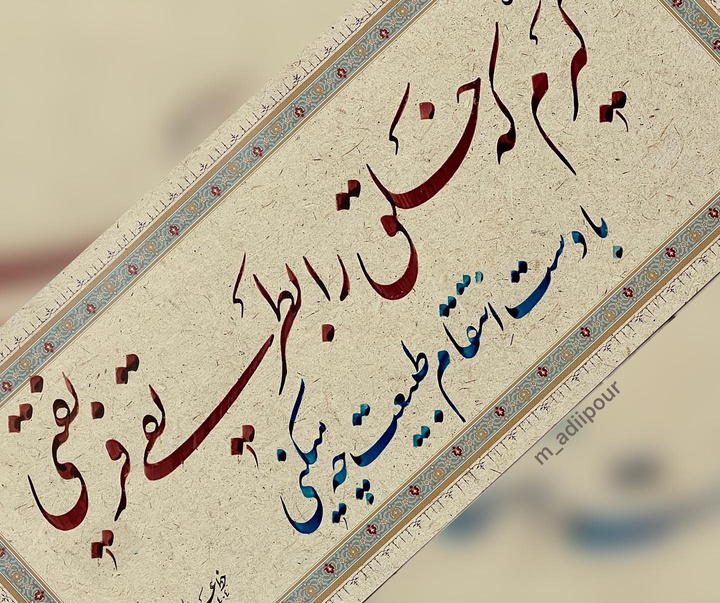 گیرم که خلق را به طریقی فریفتی
با دست انتقام طبیعت چه میکنی
m_adiipour